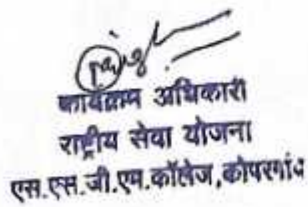 कार्यक्रम अधिकारी
राष्ट्रीय सेवा योजना
एस.एस.जी.एम.कॉलेज,कोपरगांव